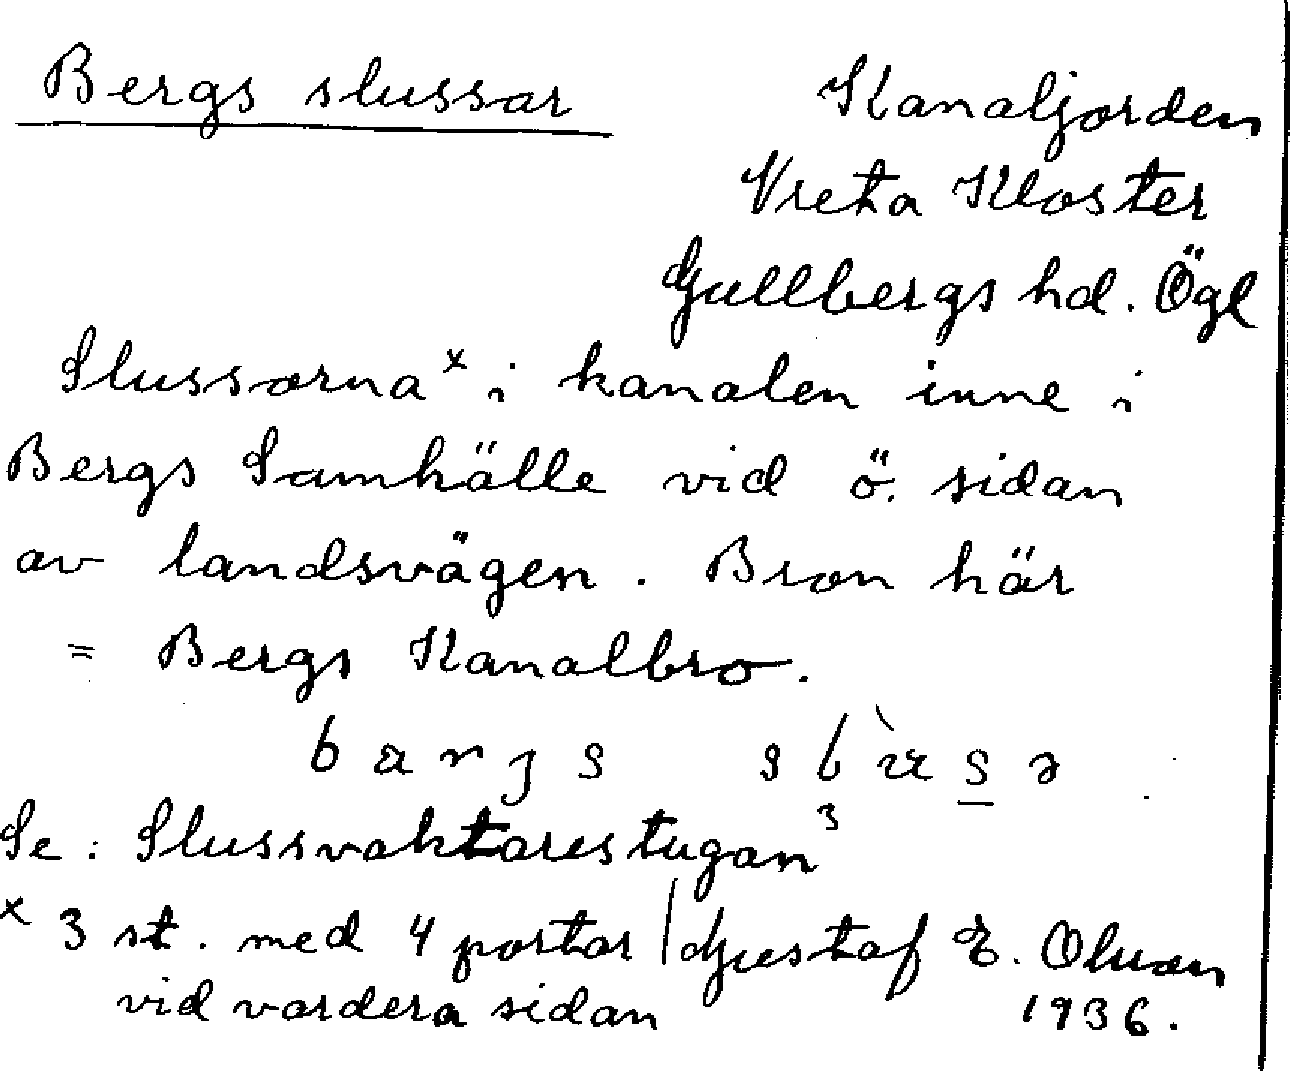 Bergs slussar
Kanaljorden
Vreta Kloster
Gullbergs hd. Ögl
Slussarna x i kanalen inne i
Bergs Samhälle vid ö. sidan
av landsvägen. Bron här
= Bergs Kanalbro.
Se: Slussvaktarestugan 3
x 3 st. med 4 portar
vid vardera sidan
Gustaf E. Olsson
1936.